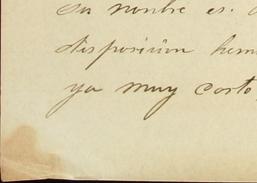 su nombre es.
disposicion
ya muy corto